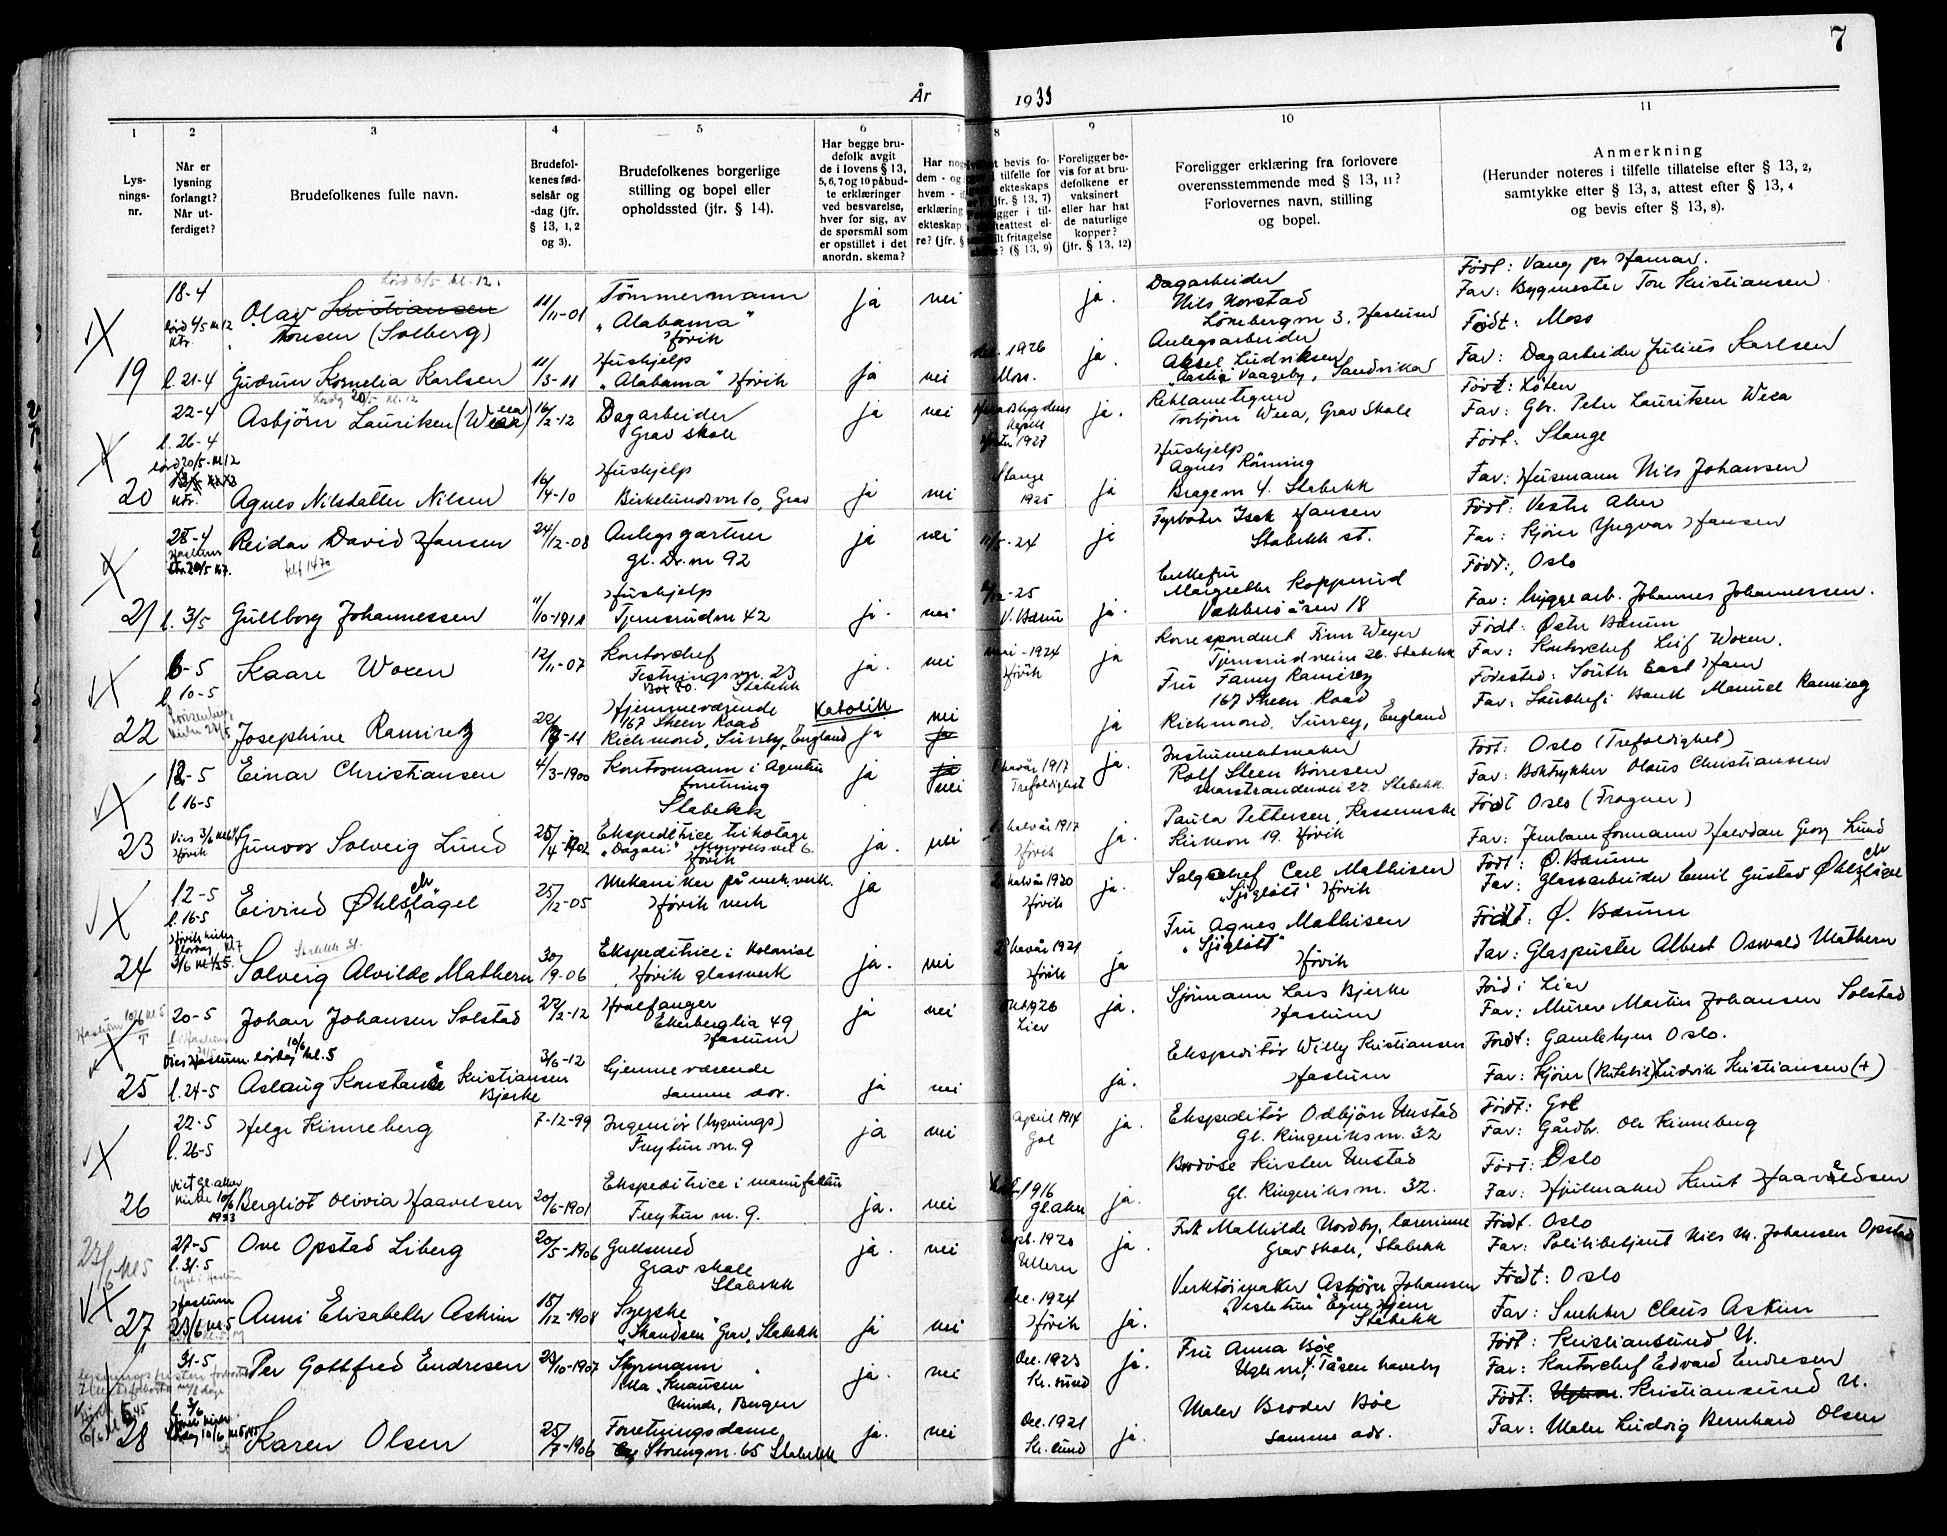 7
År 1933
1 2 3 4 5 6 7 8 9 10 11
Lysningsnr.
Når er lysning forlangt? Når utferdiget?
Brudefolkenes fulle navn.
Brudefolkenes fødselsår og -dag (jfr. § 13, 1, 2 og 3).
Brudefolkenes borgerlige stilling og bopel eller opholdssted (jfr. § 14).
Har begge brudefolk avgit de i lovens § 13, 5, 6, 7 og 10 påbudte erklæringer ved besvarelse, hver for sig, av de spørsmål som er opstillet i det anordn. skema?
Foreligger bevis for at brudefolkene er vaksinert eller har hat de naturlige kopper? (jfr. § 13, 12)
Foreligger erklæring fra forlovere overensstemmende med § 13, 11? Forlovernes navn, stilling og bopel.
Anmerkning
(Herunder noteres i tilfelle tillatelse efter § 13, 2, samtykke efter § 13, 3, attest efter § 13, 4 og bevis efter § 13, 8).
18-4 Olav Kristiansen 11/11-01 Tømmermann ja nei ja. Dagarbeider Født: Vang pr Hamar.
Tonsen (Solberg) "Alabama" Nils Norstad Far: Bygmester Tore Kristiansen
Høvik 3, Haslum Født: Moss
19 l. 21-4 Gudrun Kornelia Karlsen 11/3-11 Hushjelp "Alabama" Høvik ja nei 1926 Moss. ja. Anlegsarbeider Aksel Ludviksen Sandvika Far: Dagarbeider Julius Karlsen
22-4 Asbjørn Lauritsen (Weea) 16/2-12 Dagarbeider ja nei ja. Født: Løten
l. 26-4 Grav skole 1927 Torbjørn Weea, Grav Skole Far: Gbr. Peter Lauritsen Weea
lørd 20/5 kl 12 Hushjelp Stange Hushjelp Født: Stange
20 Agnes Nilsdatter Nilsen 16/4-10 Birkelundsvn 10, Grav ja nei 1925 ja Agnes Rønning Far: Husmann Nils Johansen
Bragevn 4. Stabekk
28-4 Reidar David Hansen 24/12-08 Anlegsgartner ja nei 11/5-24 ja Fyrbøter Isak Hansen Født: Vestre Aker
telf 1470 gl. Dr. vn 92 Stabekk st. Far: Kjører Yngvar Hansen
Hushjelp Enkefru Født: Oslo
21 l. 3/5 Gullborg Johannessen 11/10-1911 Tjernsrudvn 42 ja. nei V. Bærum ja. Margrethe Kopperud Vækkerøåsen 18 Far: byggearb. Johannes Johannessen.
6-5 Kaare Woxen 12/11-07 Kontorchef ja. nei mai-1924 ja Korrespondent Finn Weyer Født: Østre Bærum
l. 10-5 Festningsvn. 23 Høvik Tjernsrudveien 26. Stabekk Far: Kontorchef Leif Woxen.
Box 80. Stabekk Fru Fanny Ramirez Fødested: South East Ham
Hjemmeværende Katolik 167 Sheen Road Far: Manuel Ramirez
22 Josephine Ramirez 167 Sheen Road Richmond, Surrey, England ja nei ja Richmond. Surrey, England
12-5 Einar Christiansen 4/3-1900 Kontormann i Agentur forretning ja nei 1917 Trefoldighet ja. Instrumentmaker Født: Oslo (Trefoldighet)
l. 16-5 Stabekk Rolf Steen Børresen Far: Boktrykker Olaus Christiansen
22. Stabekk. Født Oslo (Frogner)
23 Vies 3/6 Høvik Gunvor Solveig Lund 25/4-1902 Ekspeditrice trikotage "Dagali" Myrvollsvei 6. Høvik ja. nei 1917 Høvik ja. Paula Pettersen, Kirkevn 19. Høvik Far: Jernbaneformann Halvdan Georg Lund
12-5 Eivind Øhlschlägel 25/12-05 Mekaniker på mek. verk. ja 1920 ja. Salgschef Carl Mathisen Født: Ø. Bærum
l. 16-5 Høvik verk Høvik "Sjøglött" Høvik Far: Glassarbeider Emil Gustav Øhlschlägel
Høvik kirke Fru Agnes Mathisen Født: Ø. Bærum
24 3/6 Solveig Alvilde Mathern 30/9-06 Ekspeditrice i Kolonial Høvik glassverk ja. nei 1921 Høvik ja "Sjøglött" Høvik Far: Glaspuster Albert Oswald Mathern
Haslum 10/6 kl 5 20-5 Johan Johansen Solstad 22/2-12 Hvalfanger ja nei 1926 ja. Sjømann Lars Bjerke Fød i Lier
Ekeberglia 49 Haslum Lier Haslum Far: Murer Martin Johansen Solstad
Vies Haslum lørdag 10/6 kl. 5 3/6-12 Hjemmeværende Ekspeditør Willy Kristiansen Født: Gamlebyen Oslo.
25 l. 24-5 Aslaug Konstanse Kristiansen Bjerke samme adr. ja nei ja. Haslum Far: Kjører Ludvik Kristiansen (+)
22-5 Helge Kinneberg 7-12-99 Ingeniør (bygnings) ja nei april 1914 ja. Ekspeditør Odbjørn Unstad Født: Gol
l. 26-5 Freytunvn. 9 Gol Gl. Ringeriksvn. 32 Far: Gårdbr. Ole Kinneberg
viet Gl. aker Ekspeditrice i manufaktur Kirsten Unstad Født: Oslo
26 kirke 10/6 1933 Bergliot Olivia Haavelsen 20/6-1901 Freytun vn. 9. ja. nei 1916 Gl aker ja. Gl. Ringeriksvn. 32. Far: Hjulmaker Knut Haavaldsen
23/6 kl 5 27-5 Ove Opstad Liberg 20/5-1906 Gullsmed ja. nei Sept. 1920 ja. Frk Mathilde Nordby, lærerinne Født. Oslo
l. 31.5 Grav skole Stabekk Ullern Grav skole, Stabekk Far: Politibetjent Nils M. Johansen Opstad
Haslum Dec. 1924 Verktøimaker Asbjørn Johansen Født: Oslo
27 23/6 kl. 5 Anni Elisabeth Askim 18/12-1908 Syerske "Skandsen" Grav, Stabekk ja nei Høvik ja. "Vesletun" Egne Hjem Stabekk Far: Snekker Claus Askim
31-5 Per Gottfred Endresen 29/10-1907 Styrmann ja. nei Dec. 1923 ja. Fru Anna Bøe Født: Kristiansund N.
Villa "Knausen" Minde, Bergen Kr. sund Tåsen haveby Far: Kontorchef Edvard Endresen
Dec. 1921 Maler Broder Bøe Født: Kristiansund N.
28 Karen Olsen 25/7-1906 Forretningsdame Storengvn. 65 Stabekk ja. nei Kr. sund ja. samme adr. Far: Maler Ludvig Bernhard Olsen